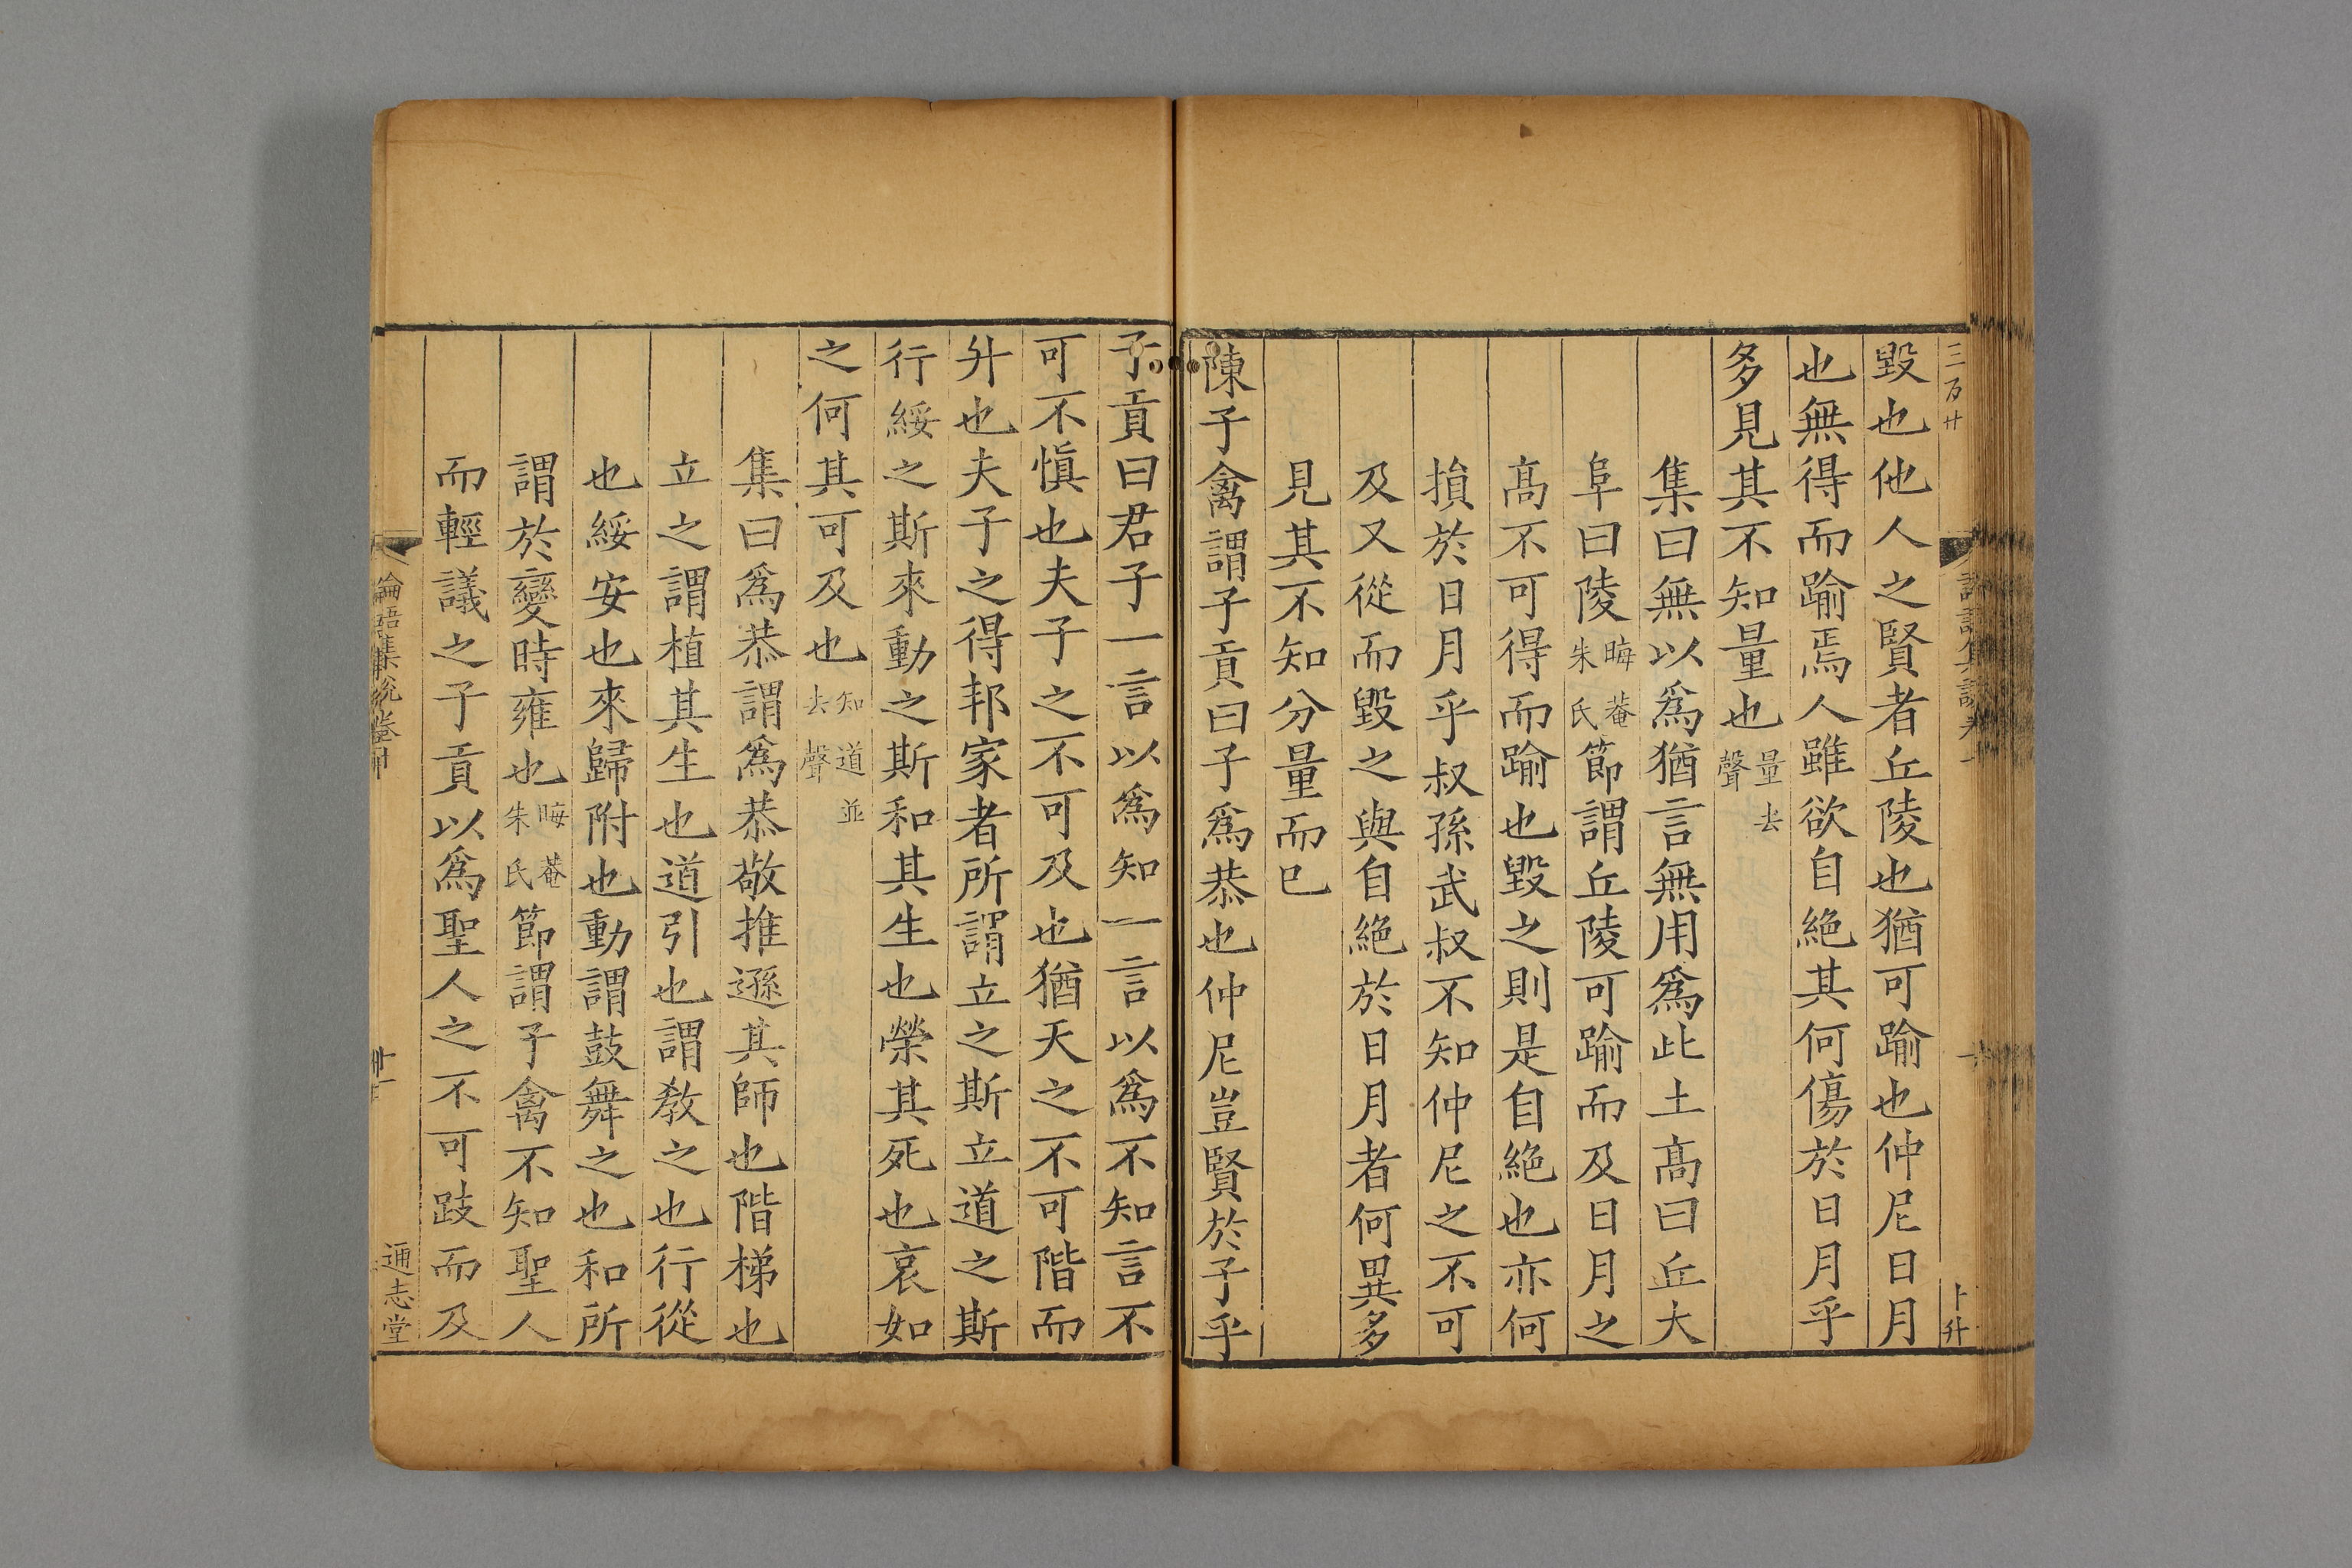 三百廿
卜升
毀也他人之賢者丘陵也猶可踰也仲尼日月
也無得而踰焉人雖欲自絕其何傷於日月乎
多見其不知量也量去聲
集曰無以爲猶言無用爲此土髙曰丘大
阜曰陵晦菴朱氏節謂丘陵可踰而及日月之
髙不可得而踰也毀之則是自絕也亦何
損於日月乎叔孫武叔不知仲尼之不可
及又從而毀之與自絕於日月者何異多
見其不知分量而已
陳子禽謂子貢曰子爲恭也仲尼豈賢於子乎
子貢曰君子一言以爲知一言以爲不知言不
可不愼也夫子之不可及也猶天之不可階而
升也夫子之得邦家者所謂立之斯立道之斯
行綏之斯來動之斯和其生也榮其死也哀如
之何其可及也知道並去聲
集曰爲恭謂爲恭敬推遜其師也階梯也
立之謂植其生也道引也謂敎之也行從
也綏安也來歸附也動謂鼓舞之也和所
謂於變時雍也晦菴朱氏節謂子禽不知聖人
而輕議之子貢以爲聖人之不可跂而及
論語集說卷十
通志堂